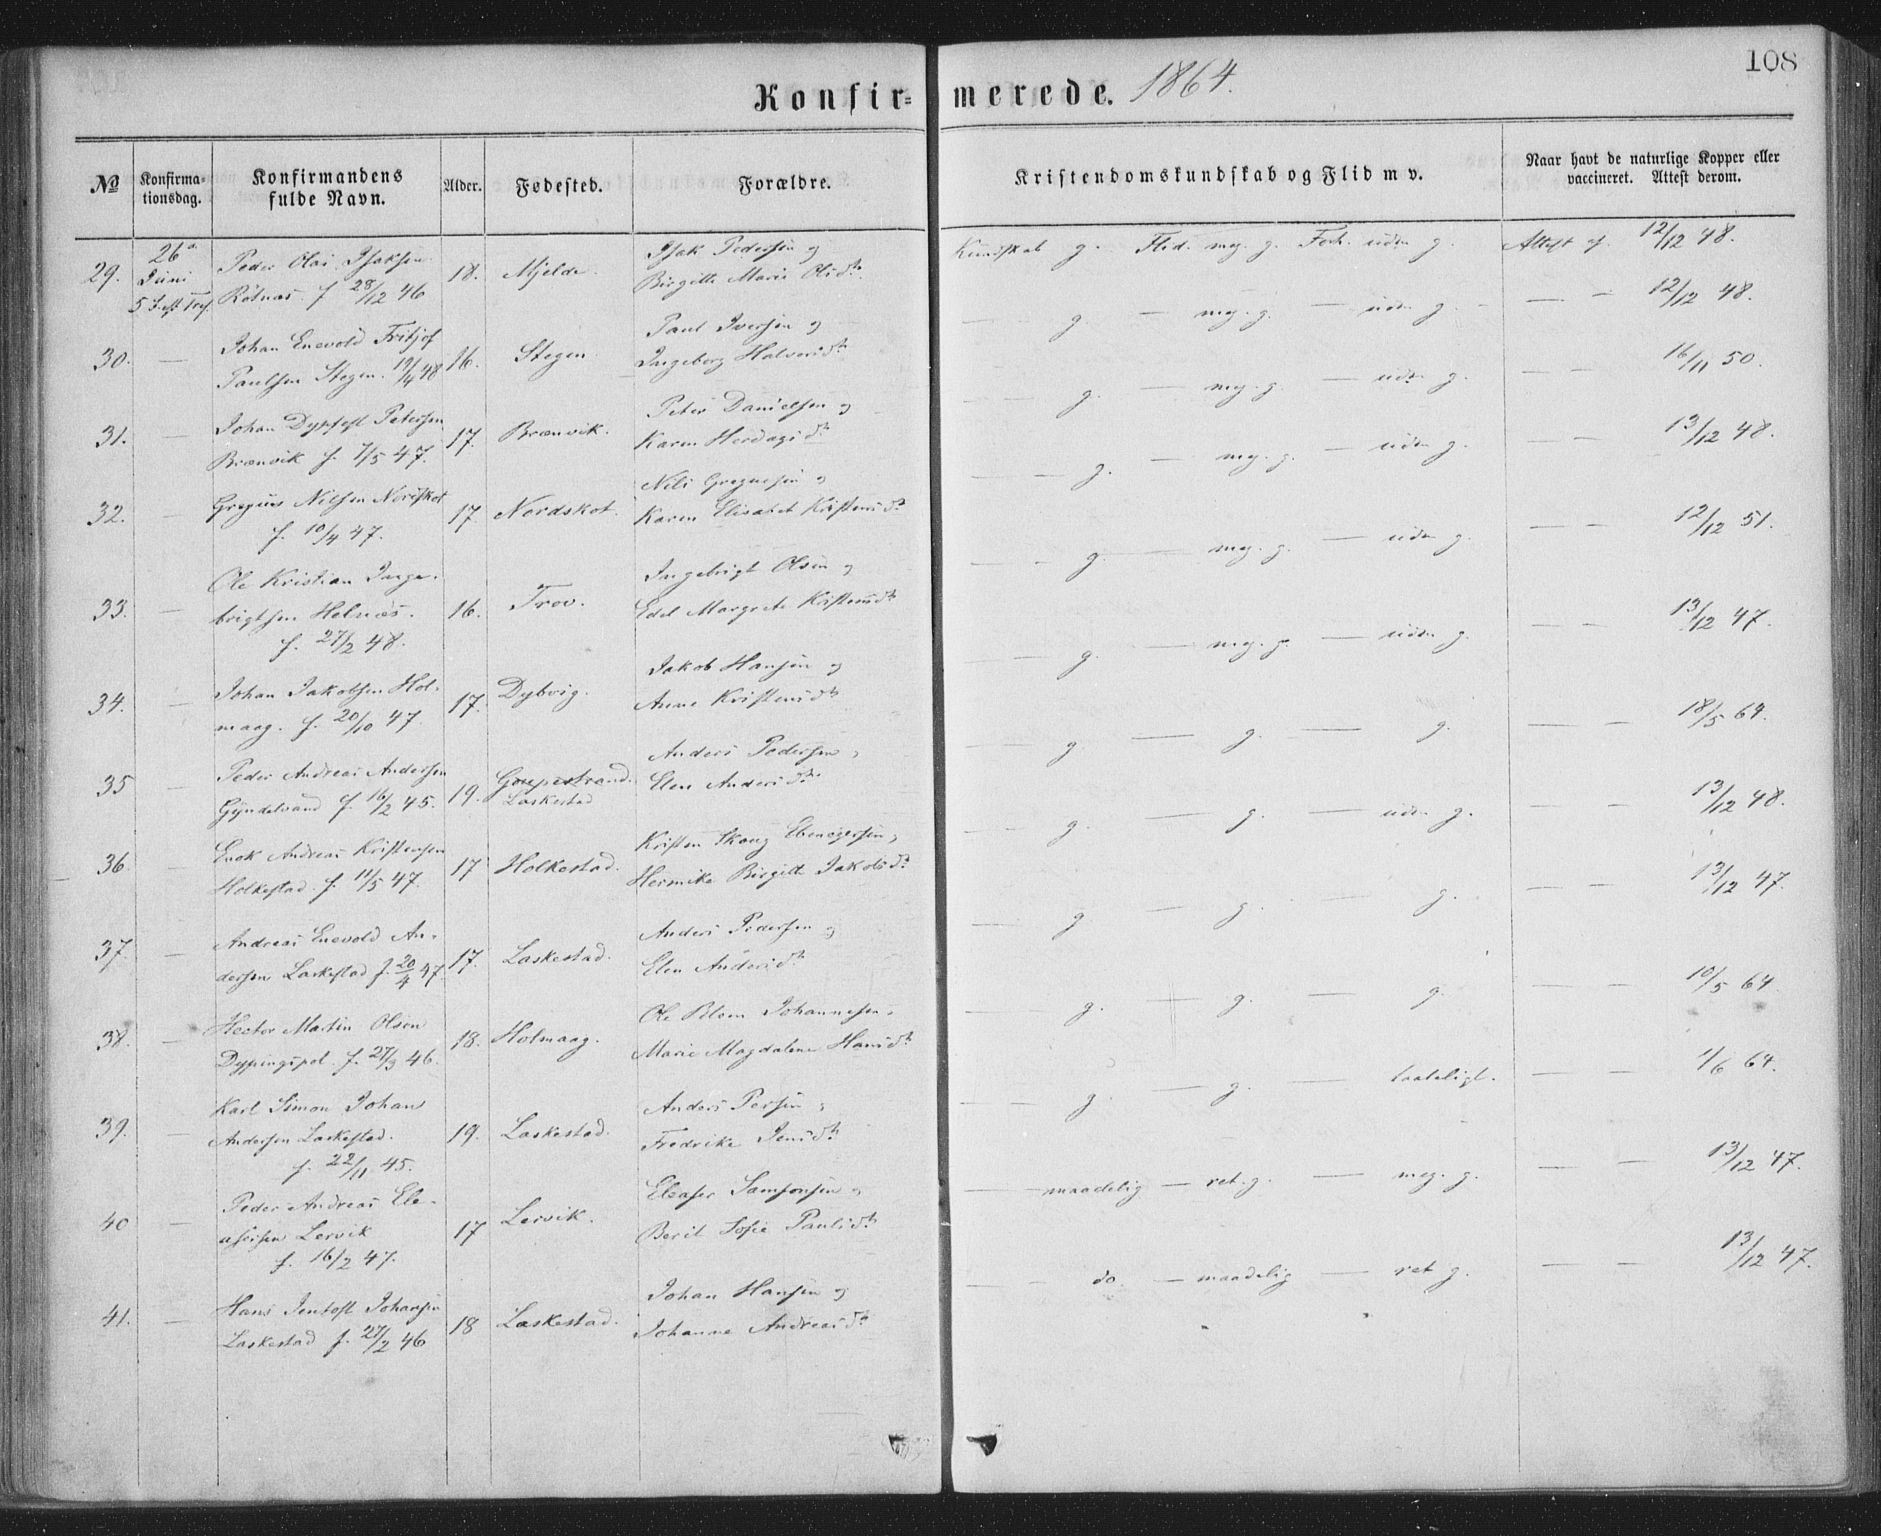 108
Konfirmerede. 1864.
№ Konfirmationsdag. Konfirmandens fulde Navn. Alder. Fødested. Forældre. Kristendomskundskab og Flid m v. Naar havt de naturlige Kopper eller vaccineret. Attest derom.
26de Peder Olai Isaksen Isak Pedersen og Kundskab g. Flid. meg. g. Forh. uden g. Attest af 12/12 48.
29. Juni 18. Mjelde.
5 S. eft. Tref. Rötnæs. f 28/12 46 Birgitte Marie Olsdtr
Johan Enevold Fritjof Paul Iversen og — g — meg. g. — uden g. — — 12/12 48.
30. — Paulsen Stegen. 19/4 48 16. Stegen. Ingeborg Halvorsdtr
Johan Petersen Peter Danielsen og — g. — meg. g. — uden g. — — 16/11 50.
31. — Brænvik f. 7/5 47. 17. Brænvik. Karen Herdagsdtr
Gregius Nilsen Nordskot Nils Gregusen og — g. — meg. g. — uden g. — — 13/12 48.
32. — f. 10/4 47. 17 Nordskot. Karen Elisabet Kristensdtr
Ole Kristian Inge- Ingebrigt Olsen og — g. — meg. g. — uden g. — — 12/12 51.
33. — brigtsen Helnæs. 16. Trov. Edel Margrete Kristensdtr
f. 27/2 48.
Johan Jakobsen Hol- Jakob Hansen og — g. — meg. g. — uden g. — — 13/12 47.
34. — maag. f. 20/10 47. 17. Dybvig. Anne Kristensdtr
Peder Andreas Andersen Anders Pedersen, — g — g. — g. — — 18/5 64.
35 Gyndelvand f. 16/2 45. 19. Laskestad Elen Andersdtr
Enok Andreas Kristensen Kristen Skaug Ebenezersen, — g. — g. — uden g. — — 13/12 48.
36. Holkestad. f. 11/5 47. 17 Holkestad. Birgitte Jakobsdtr
Andreas Enevold An- Anders Pedersen og — g — g. — g. — — 13/12 47.
37. — dersen Laskestad f. 20/4 47. 17. Laskestad. Elen Andersdtr
Hector Martin Olsen Ole Johannesen, — g. — g. — g. — — 10/5 64.
38. — Dypingspol. f. 27/3 46. 18. Holmaag. Marie Magdalene Hansdtr
Karl Simon Johan Anders Persen, — g. — g. — taaleligt. — — 1/6 64.
39. — Andersen Laskestad. 19. Laskestad. Fredrike Jensdtr
f. 22/11 45.
Peder Andreas Ele- Eleaser Samsonsen, — maadelig — ret g. — meg. g. — — 13/12 47.
40 — asersen Lervik 17 Lervik. Berit Sofie Paulsdtr
f. 16/2 47.
Hans Jentoft Johansen Johan Hansen og — do. — maadelig — ret g. — — 13/12 47.
41. — Laskestad f. 27/2 46 18 Laskestad. Johanne Andreasdtr